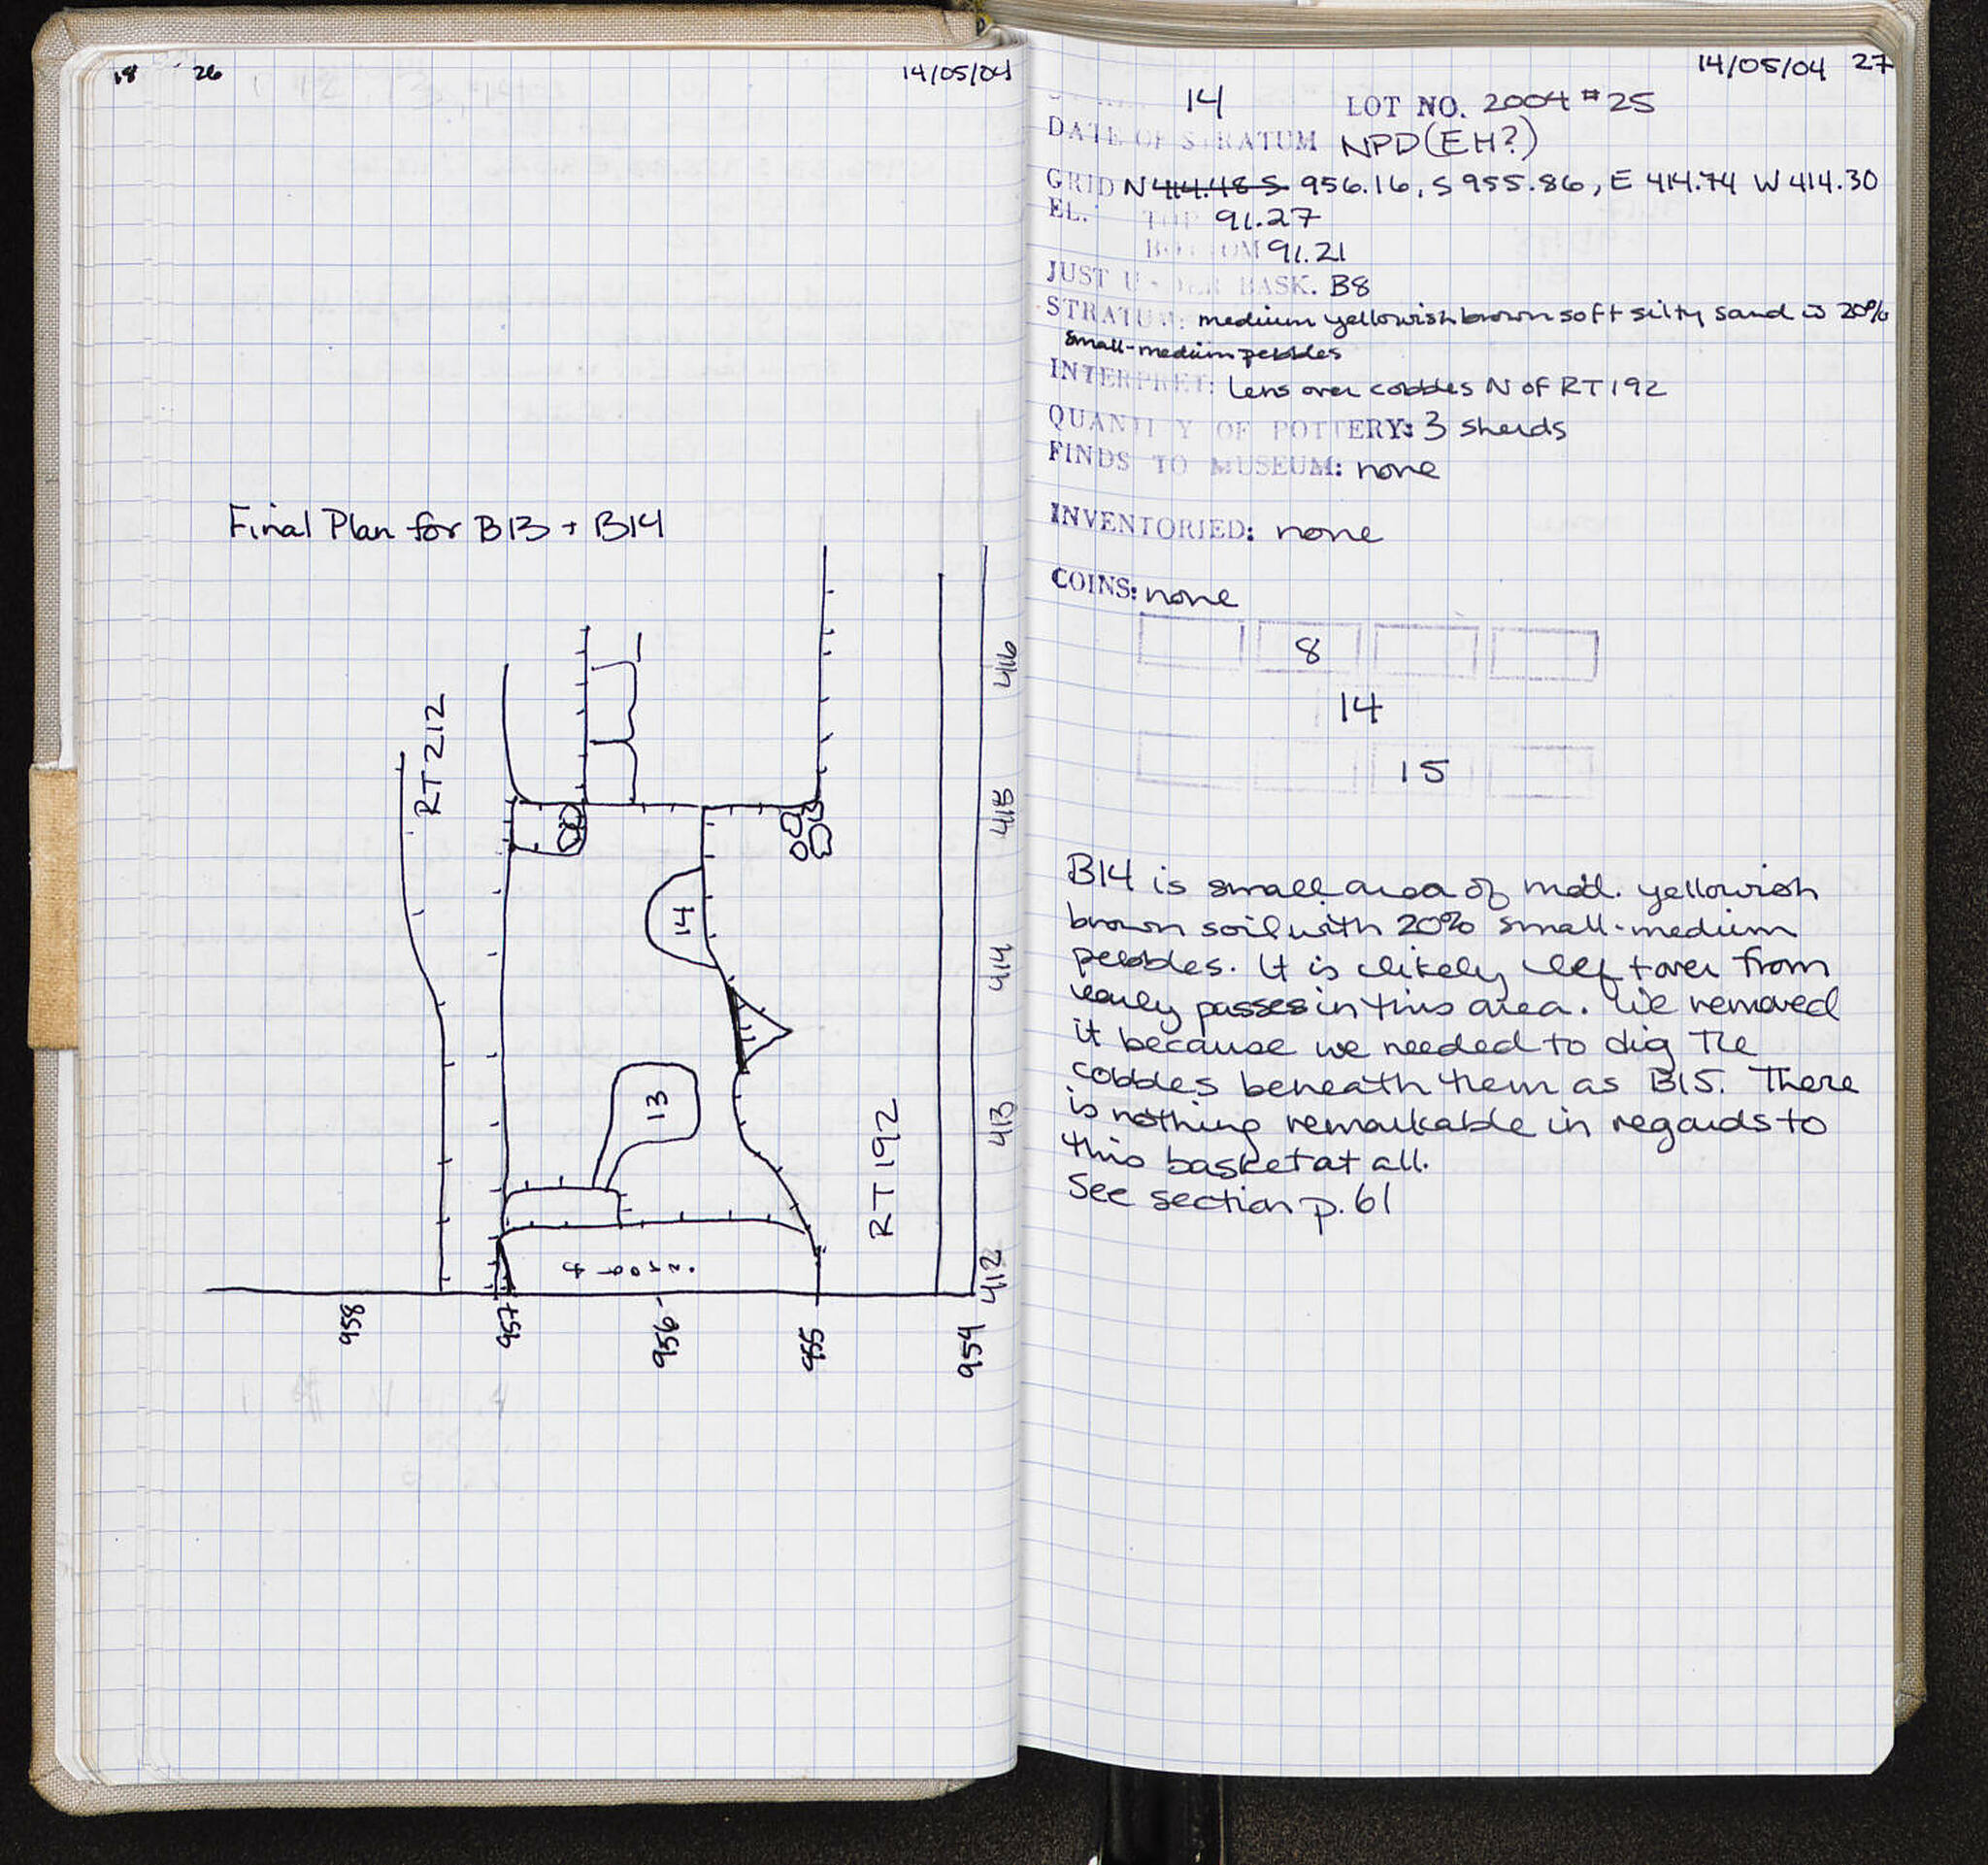 18 26 14/05/04
Final Plan for B13 + B14
RT 212
14
13
RT 192
416
415
414
413
412
958
957
956
955
954
14/05/04 27
14 LOT NO. 2004 #25
DATE OF STRATUM NPD (EH?)
GRID N 414.48 S 956.16, S 955.86, E 414.74 W 414.30
EL. TOP 91.27
BOTTOM 91.21
JUST UNDER BASK. B8
STRATUM: medium yellowish brown soft silty sand w 20%
small-medium pebbles
INTERPRET: Lens over cobbles N of RT 192
QUANTITY OF POTTERY: 3 sherds
FINDS TO MUSEUM: none
INVENTORIED: none
COINS: none
8
14
15
B14 is small area of med. yellowish
brown soil with 20% small-medium
pebbles. It is likely left over from
early passes in this area. We removed
it because we needed to dig the
cobbles beneath them as B15. There
is nothing remarkable in regards to
this basket at all.
See section p. 61